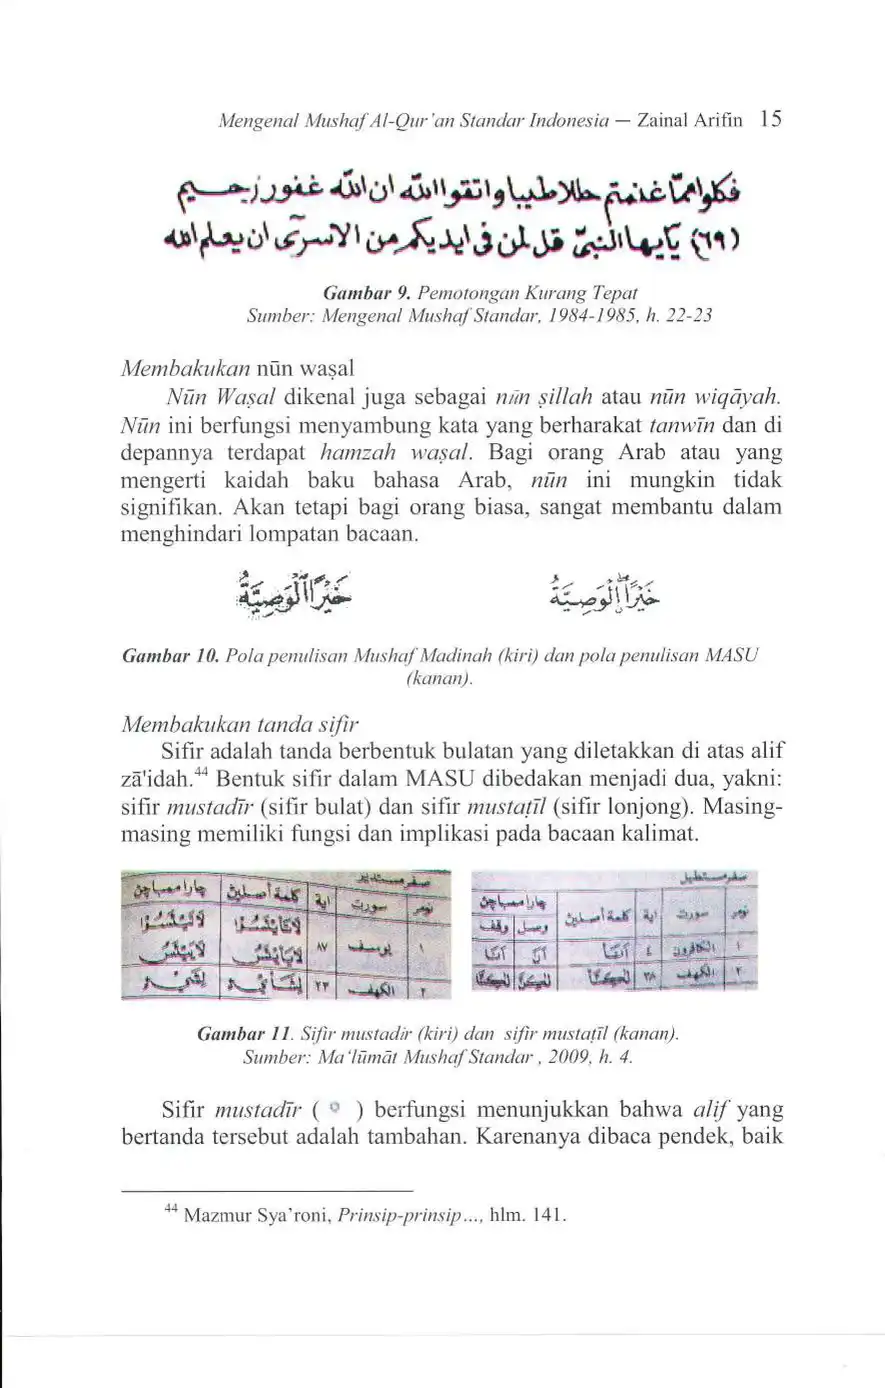 Mengenal Mushaf Al-Qur'an Standar Indonesia — Zainal Arifin 15
فكلوا مما غنمتم حللا طيبا واتقوا الله ان الله غفور رحيم
(٦٩) يٓايها النبيّ قل لمن في ايديكم من الاسرٓى ان يعلم الله
Gambar 9. Pemotongan Kurang Tepat
Sumber: Mengenal Mushaf Standar, 1984-1985, h. 22-23
Membakukan nūn waṣal
Nūn Waṣal dikenal juga sebagai nūn ṣillah atau nūn wiqāyah.
Nūn ini berfungsi menyambung kata yang berharakat tanwīn dan di
depannya terdapat hamzah waṣal. Bagi orang Arab atau yang
mengerti kaidah baku bahasa Arab, nūn ini mungkin tidak
signifikan. Akan tetapi bagi orang biasa, sangat membantu dalam
menghindari lompatan bacaan.
خَيْرًا الْوَصِيَّةُ خَيْرًا الْوَصِيَّةُ
Gambar 10. Pola penulisan Mushaf Madinah (kiri) dan pola penulisan MASU
(kanan).
Membakukan tanda sifir
Sifir adalah tanda berbentuk bulatan yang diletakkan di atas alif
zā'idah.44 Bentuk sifir dalam MASU dibedakan menjadi dua, yakni:
sifir mustadīr (sifir bulat) dan sifir mustaṭīl (sifir lonjong). Masing-
masing memiliki fungsi dan implikasi pada bacaan kalimat.
صفر مستدير
نومر سورت اية كلمة أصلين چارا ممباچن
١ يوسف ٨٧
٢ الكهف ٢٣
صفر مستطيل
نومر سورت اية كلمة أصلين چارا ممباچن
وصل وقف
١ الكافرون ٤
٢ الكهف ٣٨
Gambar 11. Sifir mustadir (kiri) dan sifir mustaṭīl (kanan).
Sumber: Ma'lūmāt Mushaf Standar , 2009, h. 4.
Sifir mustadīr ( ) berfungsi menunjukkan bahwa alif yang
bertanda tersebut adalah tambahan. Karenanya dibaca pendek, baik
44 Mazmur Sya'roni, Prinsip-prinsip..., hlm. 141.